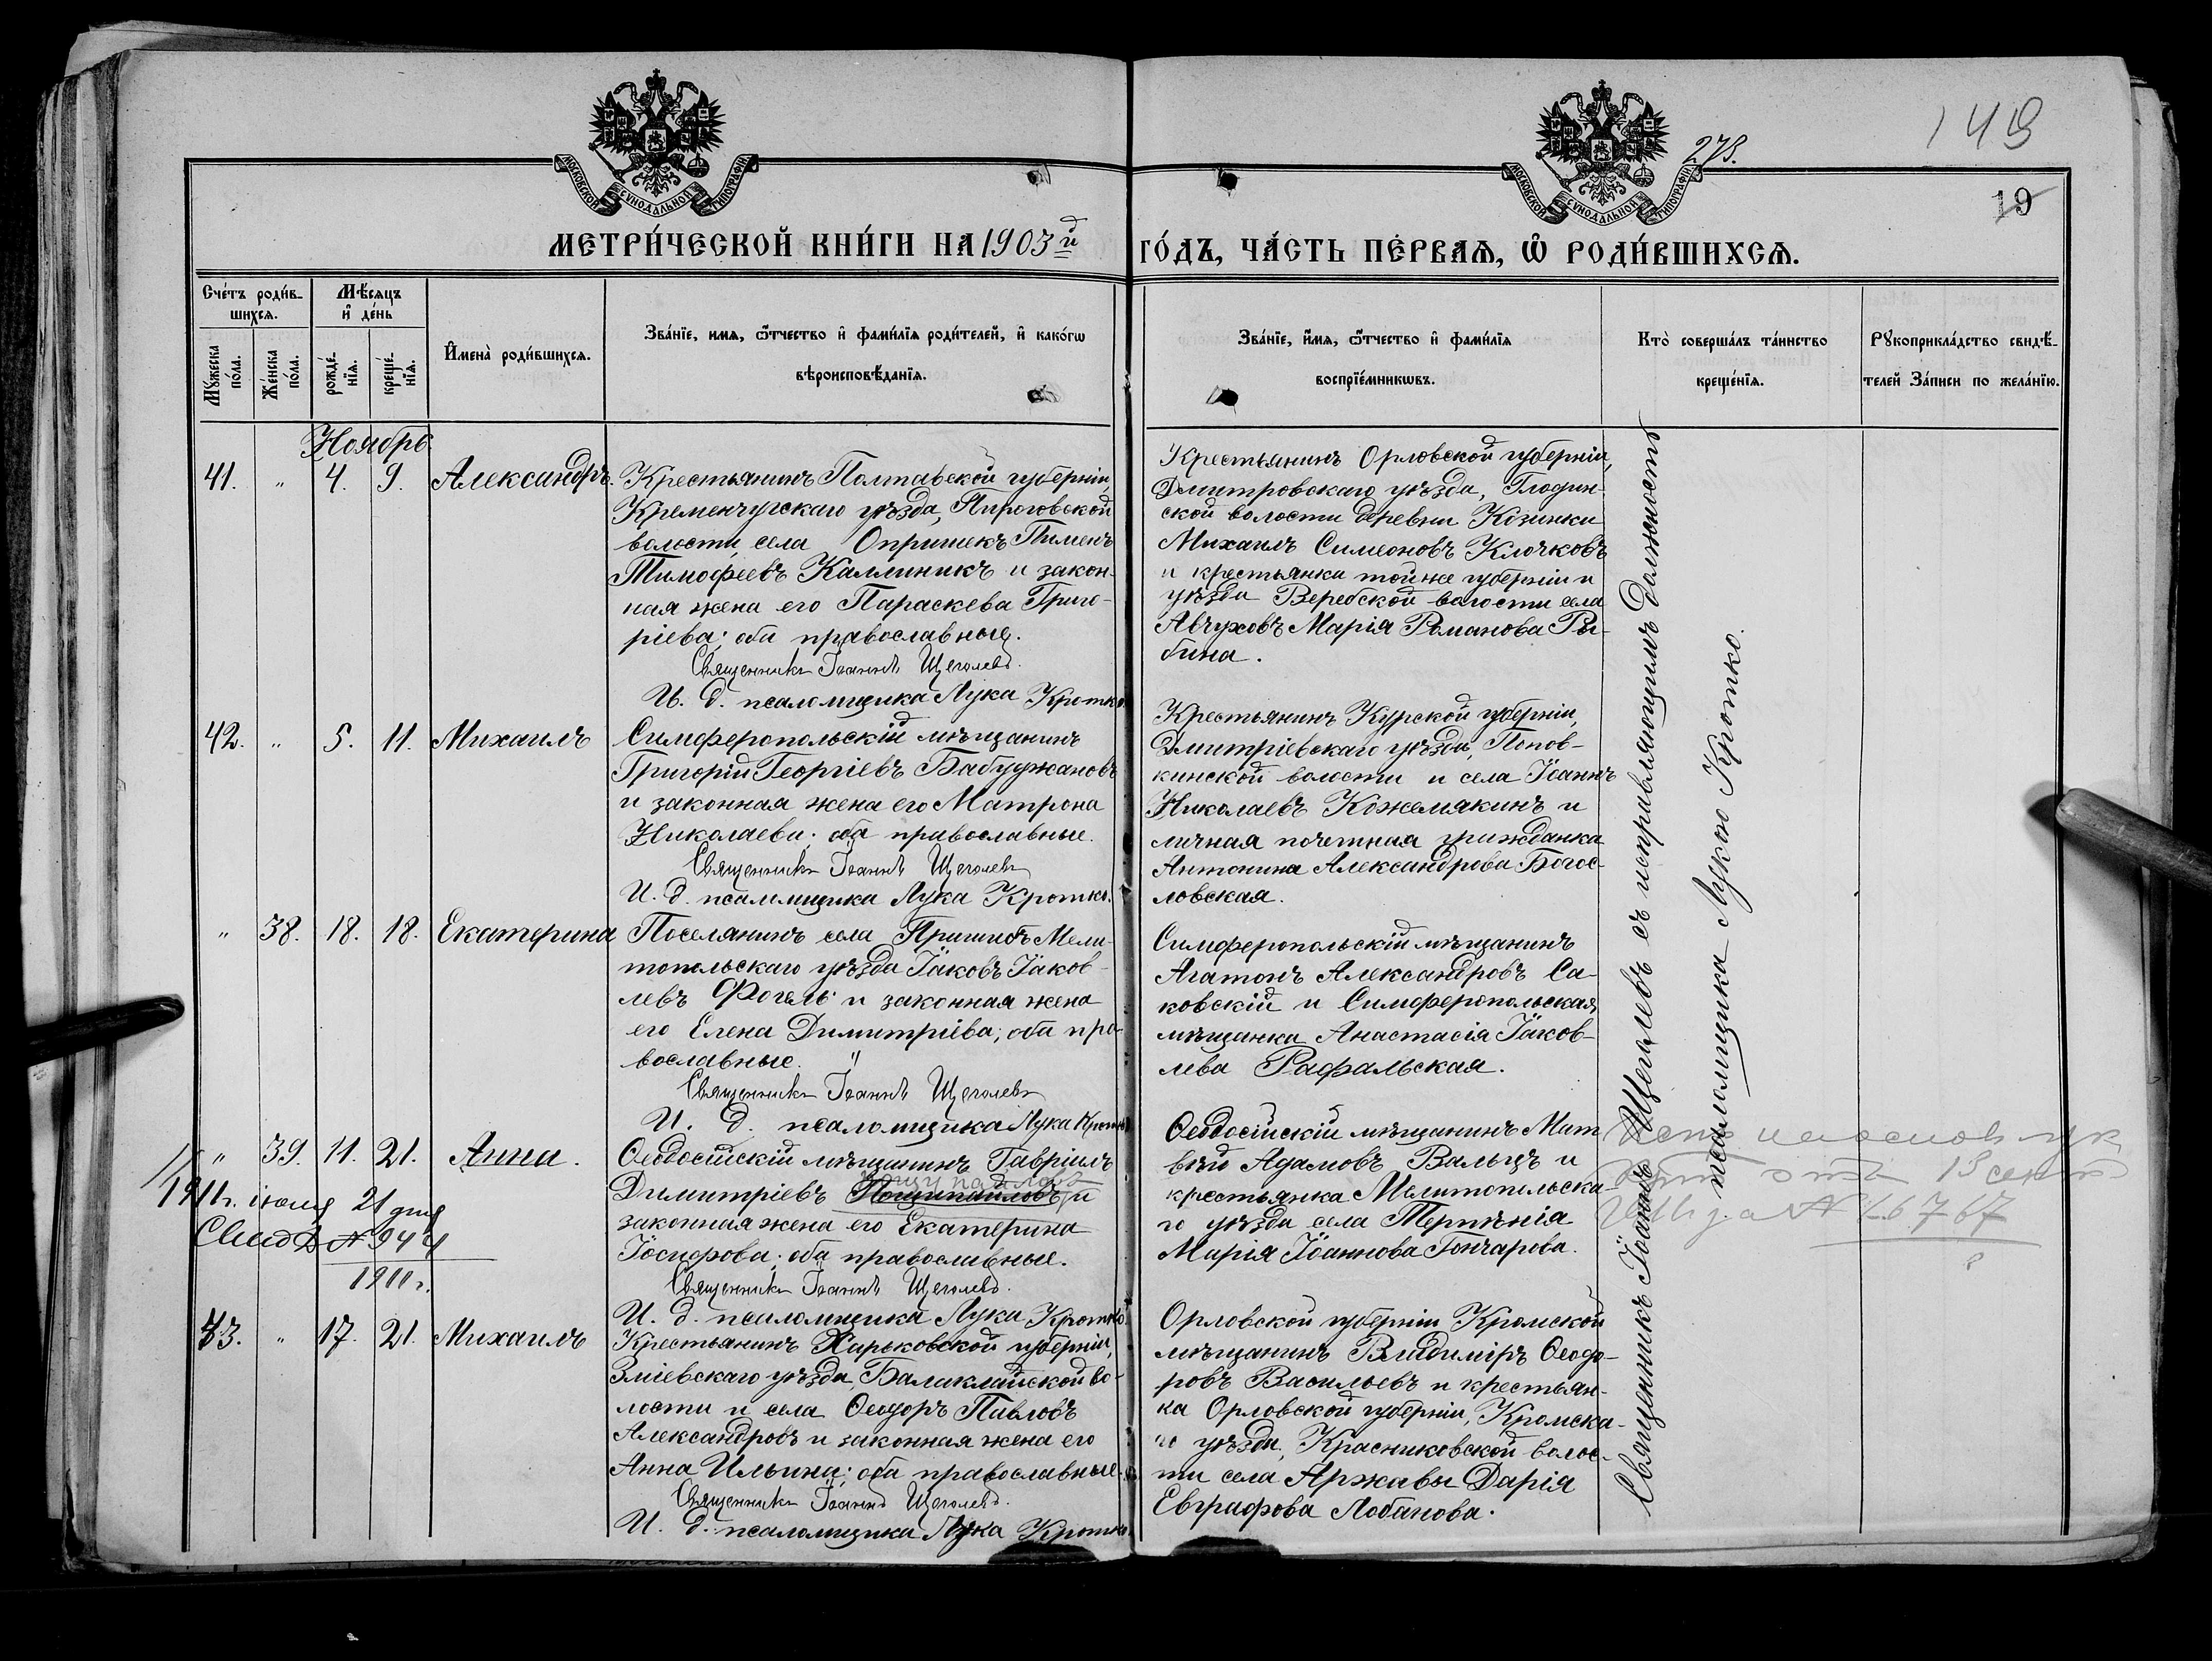 149
273.
19
МОСКОВСКОЙ СѴНОДАЛЬНОЙ ТИПОГРАФІИ
МОСКОВСКОЙ СѴНОДАЛЬНОЙ ТИПОГРАФІИ
МЕТРИ́ЧЕСКОЙ КНИ́ГИ НА 1903й ГО́ДЪ, ЧА́СТЬ ПЕ́РВАЯ, Ѡ҆ РОДИ́ВШИХСЯ.
Сче́тъ роди́в-
шихся.
Мꙋжеска по́ла.
Же́нска по́ла.
Мѣ́сяцъ
и҆ де́нь
рожде́-
нїя.
креще́-
нїя.
И҆мена̀ роди́вшихся.
Зва́нїе, имя, ѿтчество и҆ фами́лїя роди́телей, и҆ како́гѡ
вѣроисповѣ́данїя.
Зва́нїе, и҆мя, ѿтчество и҆ фами́лїя
воспрїе́мникѡвъ.
Кто̀ соверша́лъ та́инство
креще́нїя.
Рꙋкоприкла́дство свидѣ́-
телей За́писи по жела́нїю.
Ноябрь.
41. " 4. 9. Александръ.
Крестьянинъ Полтавской губерніи,
Кременчугскаго уѣзда, Пироговской
волости, села Опришекъ Пименъ
Тимофеевъ Каллиникъ и закон-
ная жена его Параскева Григо-
ріева; оба православные.
Священникъ Іоаннъ Щеголевъ.
И. д. псаломщика Лука Кротко.
Крестьянинъ Орловской губерніи,
Дмитровскаго уѣзда, Глодин-
ской волости деревни Козинки
Михаилъ Симеоновъ Клочковъ
и крестьянка той же губерніи и
уѣзда Веребской волости села
Авчуховъ Марія Романова Ря-
бина.
42. " 5. 11. Михаилъ
Симферопольскій мѣщанинъ
Григорій Георгіевъ Бабуджановъ
и законная жена его Матрона
Николаева; оба православные.
Священникъ Іоаннъ Щеголевъ
И. д. псаломщика Лука Кротко.
Крестьянинъ Курской губерніи,
Дмитріевскаго уѣзда, Попов-
кинской волости и села Іоаннъ
Николаевъ Кожемякинъ и
личная почетная гражданка
Антонина Александрова Богос-
ловская.
" 38. 18. 18. Екатерина
Поселянинъ села Пришибъ Мели-
топольскаго уѣзда Іаковъ Іаков-
левъ Фогель и законная жена
его Елена Димитріева; оба пра-
вославные. "
Священникъ Іоаннъ Щеголевъ
И. д. псаломщика Лука Кротко
Симферопольскій мѣщанинъ
Агатонъ Александровъ Са-
ковскій и Симферопольская
мѣщанка Анастасія Іаков-
лева Рафальская.
" 39. 11. 21. Анна.
1911г. іюля 21 дня
Свид. № 944
1911 г.
Ѳеодосійскій мѣщанинъ Гавріилъ
Димитріевъ и
законная жена его Екатерина
Іосифова; оба православные.
Священникъ Іоаннъ Щеголевъ.
И. д. псаломщика Лука Кротко.
Ѳеодосійскій мѣщанинъ Мат-
вѣй Адамовъ Вальцъ и
крестьянка Мелитопольска-
го уѣзда села Терпѣнія
Марія Іоаннова Гончарова.
№ 66767
43. " 17. 21. Михаилъ
Крестьянинъ Харьковской губерніи,
Зміевскаго уѣзда, Балаклейской во-
лости и села Ѳеодоръ Павловъ
Александровъ и законная жена его
Анна Ильина; оба православные.
Священникъ Іоаннъ Щеголевъ.
И. д. псаломщика Лука Кротко.
Орловской губерніи Кромской
мѣщанинъ Владиміръ Ѳеодо-
ровъ Васильевъ и крестьян-
ка Орловской губерніи, Кромска-
го уѣзда, Красниковской волос-
ти села Аржавы Дарія
Евграфова Лобанова.
Священникъ Іоаннъ Щеголевъ съ исправляющимъ должность
псаломщика Лукою Кротко.